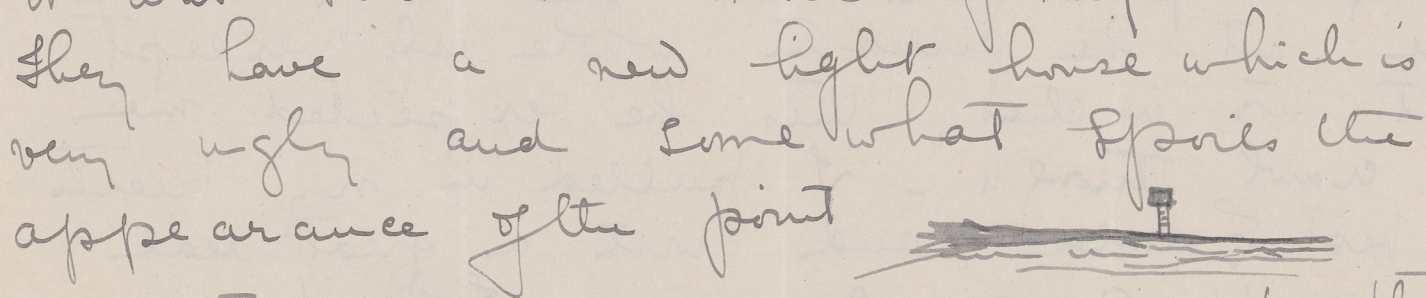 They have a new light house which is
very ugly and some what spoils the
appearance of the point